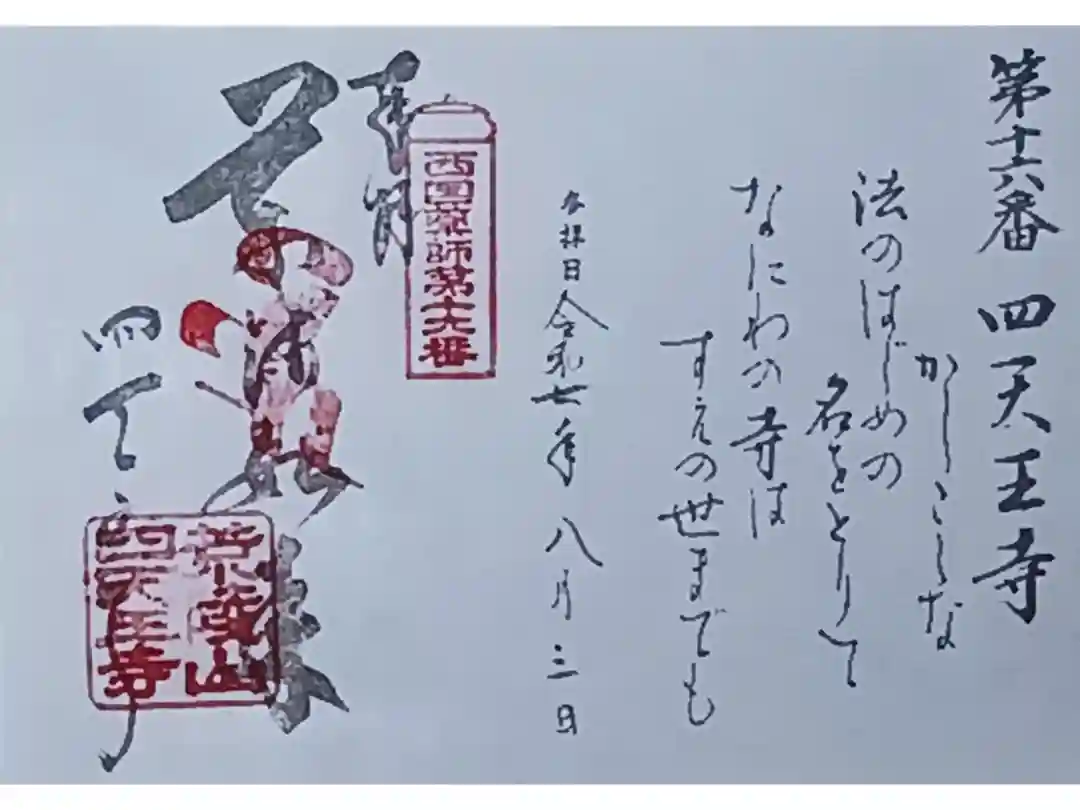 第十六番 四天王寺
かしこしな
法のはじめの
名をとりて
なにわの寺は
すえの世までも
参拝日令和七年八月三日
西国薬師第十六番
奉拝
四天王寺
荒陵山
四天王寺